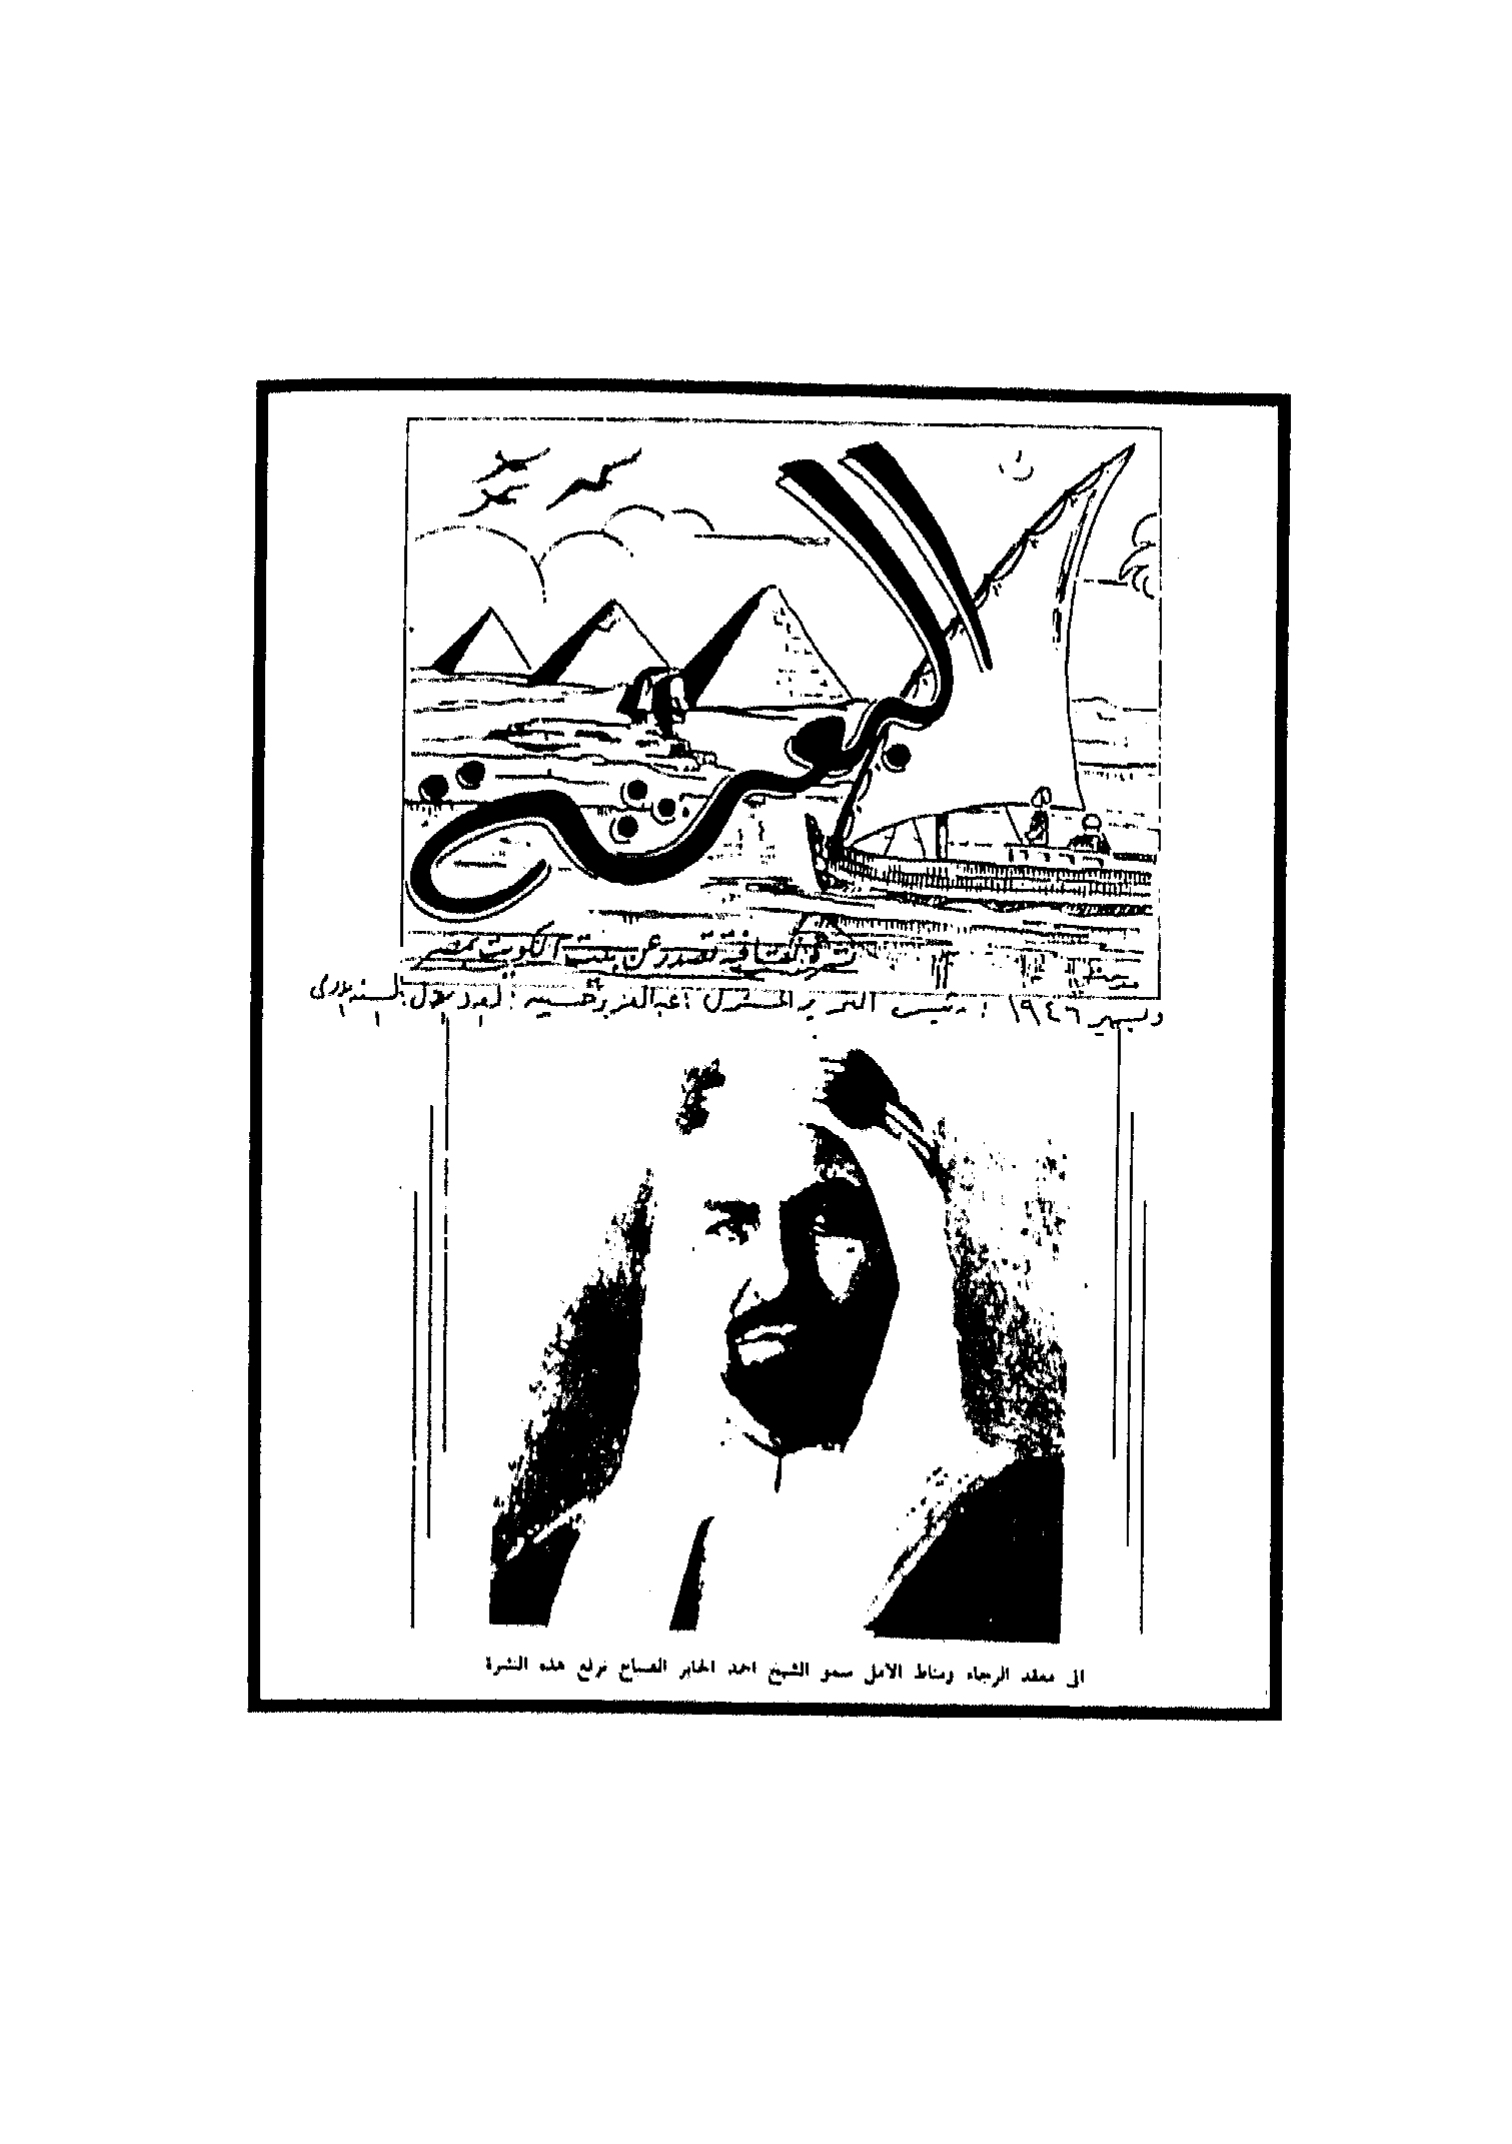 البعثة
نشرة ثقافية تصدر عن بيت الكويت بمصر
ديسمبر ١٩٤٦ : رئيس التحرير المسئول : عبد العزيز حسين :
الى معقد الرجاء ومناط الامل سمو الشيخ احمد الجابر الصباح نرفع هذه النشرة